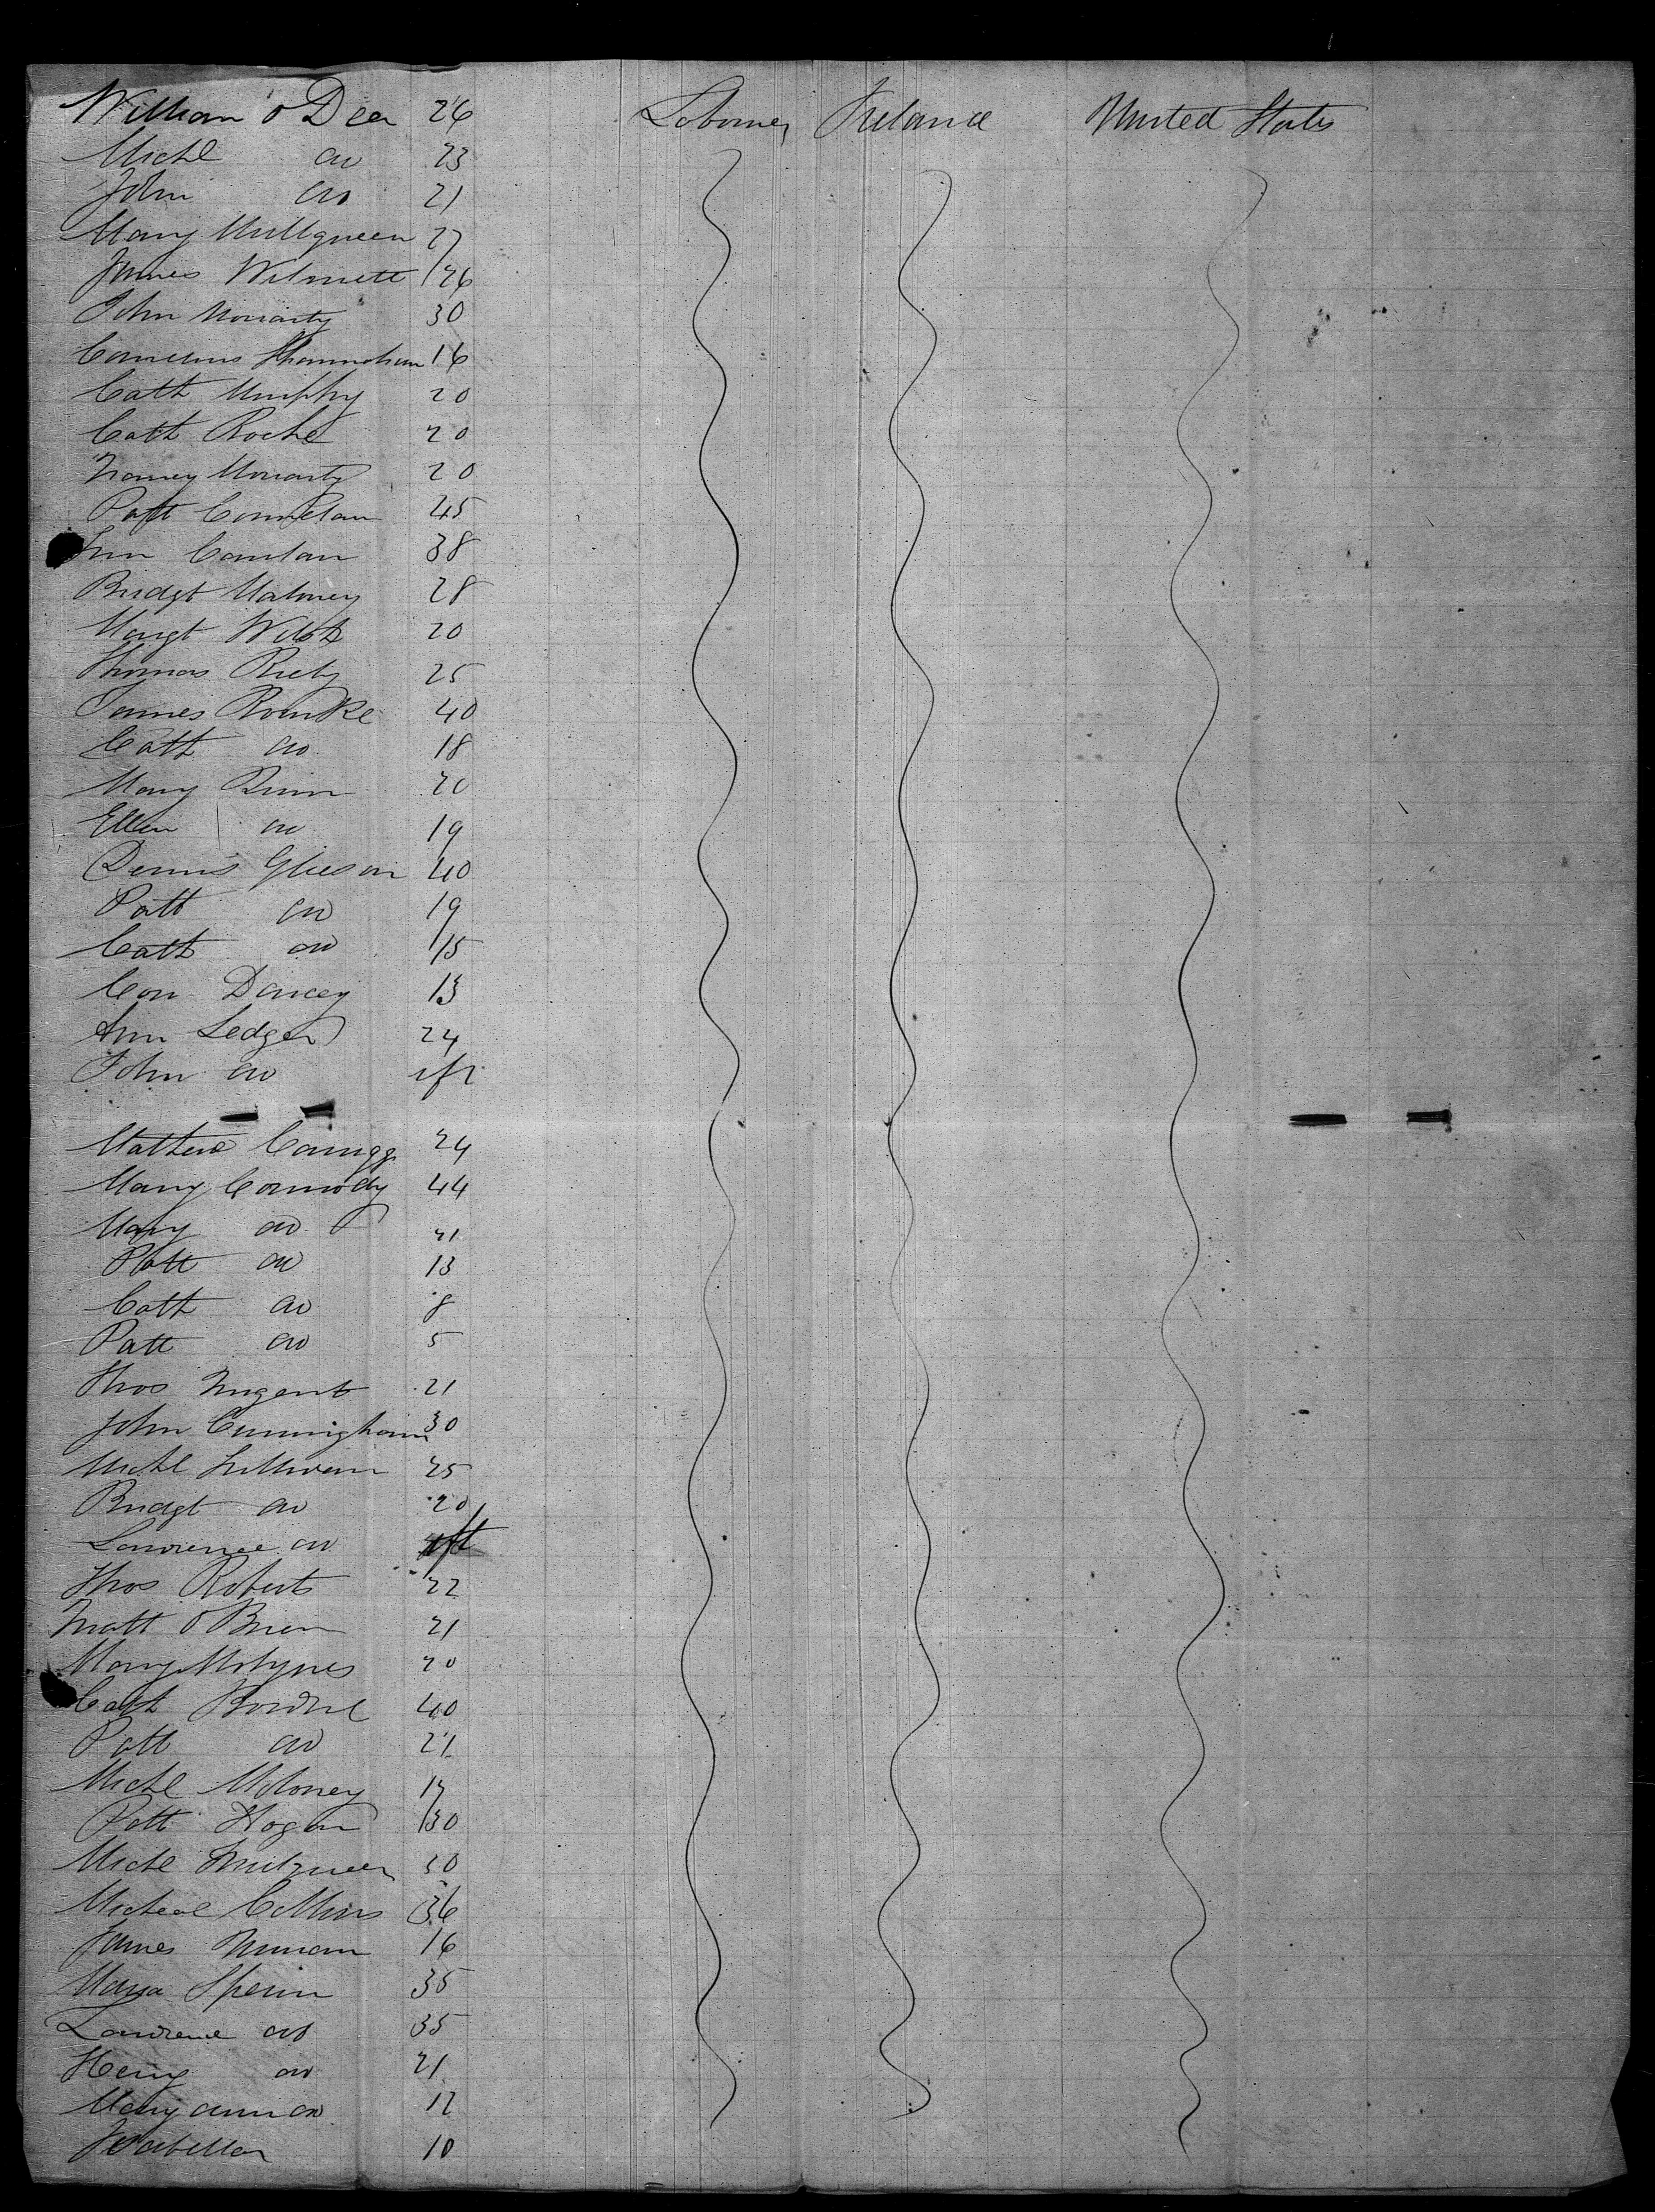 William O Dea 26 Labourer Ireland United States
Michl do 23
John do 21
Mary Mullqueen 27
James Wilmett 26
John Moriarty 30
Cornelius Shannahan 16
Cath Murphy 20
Cath Roche 20
Nancy Moriarty 20
Patt Connelan 45
Ann Conulan 38
Bridgt Maloney 28
Margt Welsh 20
Thomas 25
James Rourke 40
Cath do 18
Mary 20
Ellen do 19
Dennis Gleeson 40
Patt do 19
Cath do 15
Con Darcey 13
Ann Ledger 24
John do inft
Mathew 24
Mary Cormody 44
Mary do 21
Patt do 13
Cath do 8
Patt do 5
Thos Nugent 21
John Cunningham 30
Michl Sullivan 25
Bridgt do 20
Lawrence do inft
Thos Roberts 22
Matt O Brien 21
Mary 20
Cath 40
Patt do 21
Michl Moloney 17
Patt Hogan 30
Michl Mulqueen 30
Micheal Collins 36
James Nunan 16
Maria Sperin 35
Lawrence do 35
Henry do 21
Mary ann do 12
Isabella 10